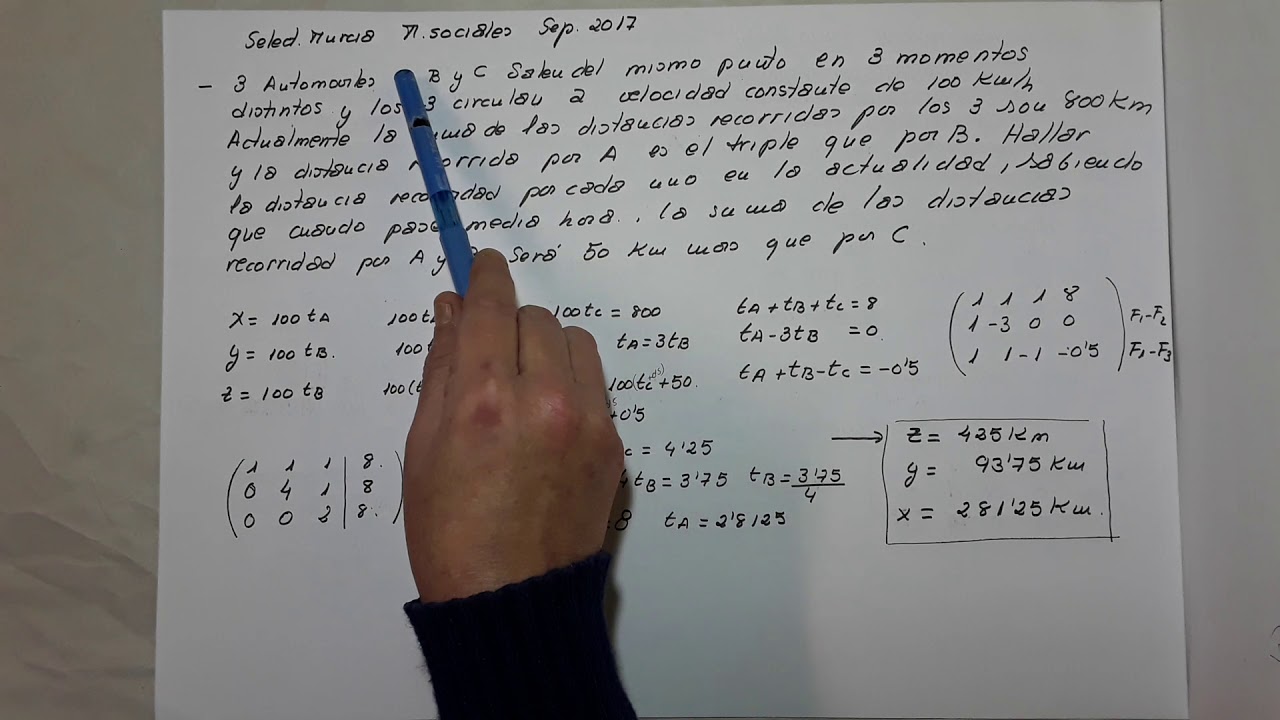 Select. Murcia M. sociales Sep. 2017
- 3 Automoviles B y C Salen del mismo punto en 3 momentos
distintos y los 3 circulan a velocidad constante de 100 Km/h
Actualmente la suma de las distancias recorridas por los 3 son 800 Km
y la distancia recorrida por A es el triple que por B. Hallar
la distancia por cada uno en la actualidad, sabiendo
que cuando pase media hora.. la suma de las distancias
recorridad por A y será 50 Km mas que por C.
x = 100 tA 100 t 100 tc = 800 tA + tB + tc = 8
y = 100 tB. 100 tA = 3tB tA - 3tB = 0
z = 100 tB 100(t 100(tc +0'5)+50. tA + tB - tc = -0'5
+0'5
1 1 1 8
1 -3 0 0 F1-F2
1 1 -1 -0'5 F1-F3
1 1 1 8.
0 4 1 8
0 0 2 8.
c = 4'25
4tB = 3'75 tB = 3'75/4
= 8 tA = 2'8125
z = 425 Km
y = 93'75 Km
x = 281'25 Km.